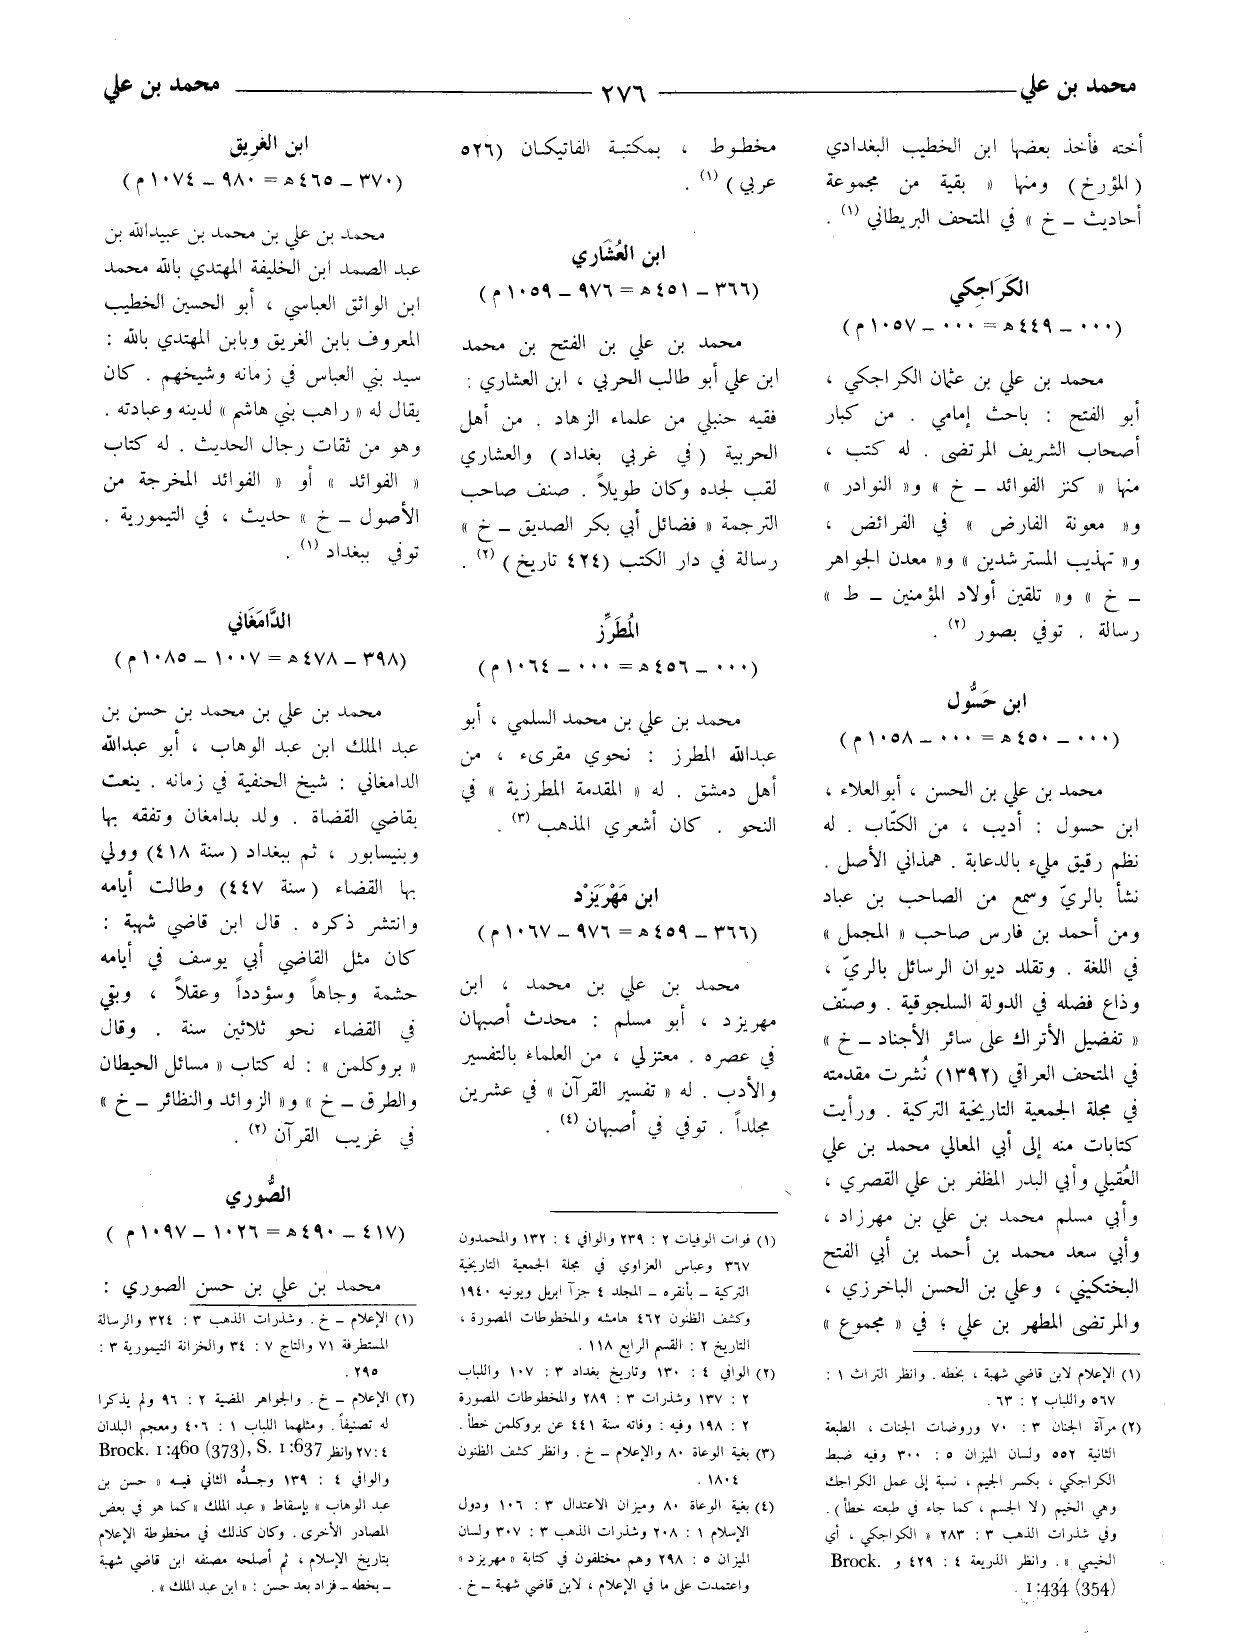 محمد بن علي
٢٧٦
محمد بن علي
أخته فأخذ بعضها ابن الخطيب البغدادي
(المؤرخ) ومنها « بقية من مجموعة
أحاديث ــ خ » في المتحف البريطاني (١) .
الكَرَاجِكي
(٠٠٠ ــ ٤٤٩ ه = ٠٠٠ ــ ١٠٥٧ م)
محمد بن علي بن عثمان الكراجكي ،
أبو الفتح : باحث إمامي . من كبار
أصحاب الشريف المرتضى . له كتب ،
منها « كنز الفوائد ــ خ » و« النوادر »
و« معونة الفارض » في الفرائض ،
و« تهذيب المسترشدين » و« معدن الجواهر
ــ خ » و« تلقين أولاد المؤمنين ــ ط »
رسالة . توفي بصور (٢) .
ابن حَسُّول
(٠٠٠ ــ ٤٥٠ ه = ٠٠٠ ــ ١٠٥٨ م)
محمد بن علي بن الحسن ، أبو العلاء ،
ابن حسول : أديب ، من الكتّاب . له
نظم رقيق مليء بالدعابة . همذاني الأصل .
نشأ بالريّ وسمع من الصاحب بن عباد
ومن أحمد بن فارس صاحب « المجمل »
في اللغة . وتقلد ديوان الرسائل بالريّ ،
وذاع فضله في الدولة السلجوقية . وصنّف
« تفضيل الأتراك على سائر الأجناد ــ خ »
في المتحف العراقي (١٣٩٢) نُشرت مقدمته
في مجلة الجمعية التاريخية التركية . ورأيت
كتابات منه إلى أبي المعالي محمد بن علي
العُقيلي وأبي البدر المظفر بن علي القصري ،
وأبي مسلم محمد بن علي بن مهرزاد ،
وأبي سعد محمد بن أحمد بن أبي الفتح
البختكيني ، وعلي بن الحسن الباخرزي ،
والمرتضى المطهر بن علي ؛ في « مجموع »
(١) الإعلام لابن قاضي شهبة ، بخطه . وانظر التراث ١ :
٥٦٧ واللباب ٢ : ٦٣ .
(٢) مرآة الجنان ٣ : ٧٠ وروضات الجنات ، الطبعة
الثانية ٥٥٢ ولسان الميزان ٥ : ٣٠٠ وفيه ضبط
الكراجكي ، بكسر الجيم ، نسبة إلى عمل الكراجك
وهي الخيم (لا الجسم ، كما جاء في طبعته خطأ) .
وفي شذرات الذهب ٣ : ٢٨٣ « الكواجكي ، أي
الخيمي » . وانظر الذريعة ٤ : ٤٢٩ و Brock.
1:434 (354) .
مخطوط ، بمكتبة الفاتيكان (٥٢٦
عربي) (١) .
ابن العُشَاري
(٣٦٦ ــ ٤٥١ ه = ٩٧٦ ــ ١٠٥٩ م)
محمد بن علي بن الفتح بن محمد
ابن علي أبو طالب الحربي ، ابن العشاري :
فقيه حنبلي من علماء الزهاد . من أهل
الحربية (في غربي بغداد) والعشاري
لقب لجده وكان طويلاً . صنف صاحب
الترجمة « فضائل أبي بكر الصديق ــ خ »
رسالة في دار الكتب (٤٢٤ تاريخ) (٢) .
المُطَرِّز
(٠٠٠ ــ ٤٥٦ ه = ٠٠٠ ــ ١٠٦٤ م)
محمد بن علي بن محمد السلمي ، أبو
عبدالله المطرز : نحوي مقرىء ، من
أهل دمشق . له « المقدمة المطرزية » في
النحو . كان أشعري المذهب (٣) .
ابن مَهْرَيَزْد
(٣٦٦ ــ ٤٥٩ ه = ٩٧٦ ــ ١٠٦٧ م)
محمد بن علي بن محمد ، ابن
مهريزد ، أبو مسلم : محدث أصبهان
في عصره . معتزلي ، من العلماء بالتفسير
والأدب . له « تفسير القرآن » في عشرين
مجلداً . توفي في أصبهان (٤) .
(١) فوات الوفيات ٢ : ٢٣٩ والوافي ٤ : ١٣٢ والمحمدون
٣٦٧ وعباس العزاوي في مجلة الجمعية التاريخية
التركية ــ بأنقره ــ المجلد ٤ جزآ ابريل ويونيه ١٩٤٠
وكشف الظنون ٤٦٢ هامشه والمخطوطات المصورة ،
التاريخ ٢ : القسم الرابع ١١٨ .
(٢) الوافي ٤ : ١٣٠ وتاريخ بغداد ٣ : ١٠٧ واللباب
٢ : ١٣٧ وشذرات ٣ : ٢٨٩ والمخطوطات المصورة
٢ : ١٩٨ وفيه : وفاته سنة ٤٤١ عن بروكلمن خطأ .
(٣) بغية الوعاة ٨٠ والإعلام ــ خ . وانظر كشف الظنون
١٨٠٤ .
(٤) بغية الوعاة ٨٠ وميزان الاعتدال ٣ : ١٠٦ ودول
الإسلام ١ : ٢٠٨ وشذرات الذهب ٣ : ٣٠٧ ولسان
الميزان ٥ : ٢٩٨ وهم مختلفون في كتابة « مهريزد »
واعتمدت على ما في الإعلام ، لابن قاضي شهبة ــ خ .
ابن الغَرِيق
(٣٧٠ ــ ٤٦٥ ه = ٩٨٠ ــ ١٠٧٤ م)
محمد بن علي بن محمد بن عبيدالله بن
عبد الصمد ابن الخليفة المهتدي بالله محمد
ابن الواثق العباسي ، أبو الحسين الخطيب
المعروف بابن الغريق وبابن المهتدي بالله :
سيد بني العباس في زمانه وشيخهم . كان
يقال له « راهب بني هاشم » لدينه وعبادته .
وهو من ثقات رجال الحديث . له كتاب
« الفوائد » أو « الفوائد المخرجة من
الأصول ــ خ » حديث ، في التيمورية .
توفي ببغداد (١) .
الدَّامَغَاني
(٣٩٨ ــ ٤٧٨ ه = ١٠٠٧ ــ ١٠٨٥ م)
محمد بن علي بن محمد بن حسن بن
عبد الملك ابن عبد الوهاب ، أبو عبدالله
الدامغاني : شيخ الحنفية في زمانه . ينعت
بقاضي القضاة . ولد بدامغان وتفقه بها
وبنيسابور ، ثم ببغداد (سنة ٤١٨) وولي
بها القضاء (سنة ٤٤٧) وطالت أيامه
وانتشر ذكره . قال ابن قاضي شهبة :
كان مثل القاضي أبي يوسف في أيامه
حشمة وجاهاً وسؤدداً وعقلاً ، وبقي
في القضاء نحو ثلاثين سنة . وقال
« بروكلمن » : له كتاب « مسائل الحيطان
والطرق ــ خ » و« الزوائد والنظائر ــ خ »
في غريب القرآن (٢) .
الصُّوري
(٤١٧ ــ ٤٩٠ ه = ١٠٢٦ ــ ١٠٩٧ م)
محمد بن علي بن حسن الصوري :
(١) الإعلام ــ خ . وشذرات الذهب ٣ : ٣٢٤ والرسالة
المستطرفة ٧١ والتاج ٧ : ٣٤ والخزانة التيمورية ٣ :
٢٩٥ .
(٢) الإعلام ــ خ . والجواهر المضية ٢ : ٩٦ ولم يذكرا
له تصنيفاً . ومثلهما اللباب ١ : ٤٠٦ ومعجم البلدان
٤ : ٢٧ وانظر Brock. 1:460 (373), S. 1:637
والوافي ٤ : ١٣٩ وجدُّه الثاني فيه « حسن بن
عبد الوهاب » بإسقاط « عبد الملك » كما هو في بعض
المصادر الأخرى . وكان كذلك في مخطوطة الإعلام
بتاريخ الإسلام ، ثم أصلحه مصنفه ابن قاضي شهبة
ــ بخطه ــ فزاد بعد حسن : « ابن عبد الملك » .